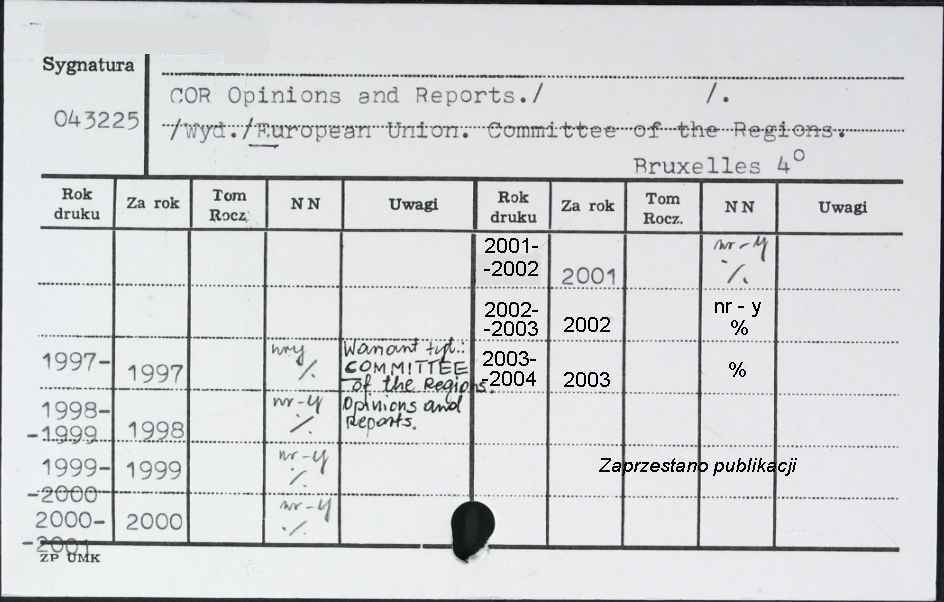 Sygnatura
043225
COR Opinions and Reports./ /.
/Wyd./European Union. Committee of the Regions.
Bruxelles 4°
Rok druku Za rok Tom Rocz. NN Uwagi Rok druku Za rok Tom Rocz. NN Uwagi
2001-
-2002 2001 nr-y ·/.
2002-
-2003 2002 nr - y %
1997- 1997 nry ·/. Wariant tyt.: COMMITTEE of the Regions.
2003-
-2004 2003 %
1998-
-1999 1998 nr-y ·/. Opinions and Reports.
1999-
-2000 1999 nr-y ·/.
Zaprzestano publikacji
2000-
-2001 2000 nr-y ·/.
ZP UMK